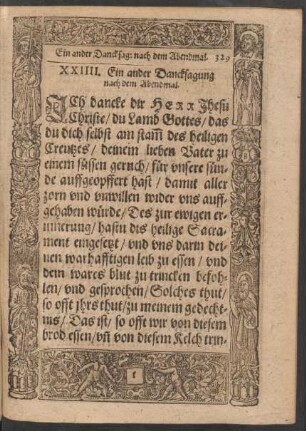 Ein ander Dancksag: nach dem Abendmal. 129
XXIIII. Ein ander Dancksagung
nach dem Abendmal.
ICh dancke dir HErr Jhesu
Christe/ du Lamb Gottes/ das
du dich selbst am stam̃ des heiligen
Creutzes/ deinem lieben Vater zu
einem süssen geruch/ für vnsere sün-
de auffgeopffert hast/ damit aller
zorn vnd vnwillen wider vns auff-
gehaben würde/ Des zur ewigen er-
innerung/ hastu das heilige Sacra-
ment eingesetzt/ vnd vns darin dei-
nen warhafftigen leib zu essen/ vnd
dein wares blut zu trincken befoh-
len/ vnd gesprochen/ Solches thut/
so offt jhrs thut/ zu meinem gedecht-
nus/ Das ist/ so offt wir von diesem
brod essen/ vñ von diesem Kelch trin-